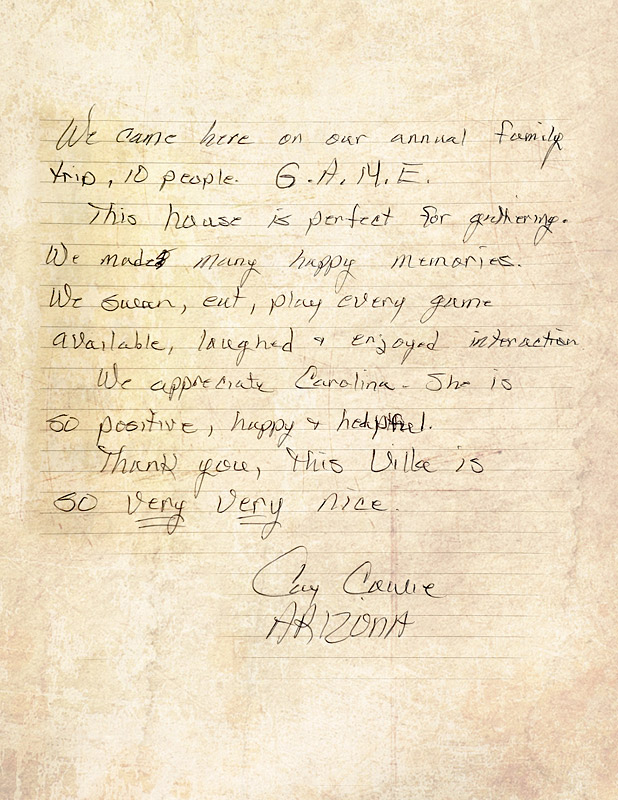 We came here on our annual family
trip, 10 people. G.A.M.E.
This house is perfect for gathering.
We made many happy memories.
We swam, eat, play every game
available, laughed & enjoyed interaction
We appreciate Carolina. She is
so positive, happy & helpful.
Thank you, this Villa is
so very very nice.
Cay
ARIZONA